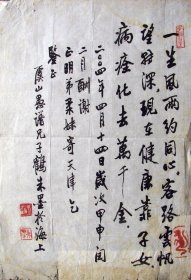 一生風雨約同心客路雲帆
望時深現在健康靠子女
病痊化去萬千金
二〇〇四年四月十四日歲次甲申閏
二月酬謝
正明弟素妹寄天津乞
鑒正
虞山愚譜兄子鶴朱墨於海上